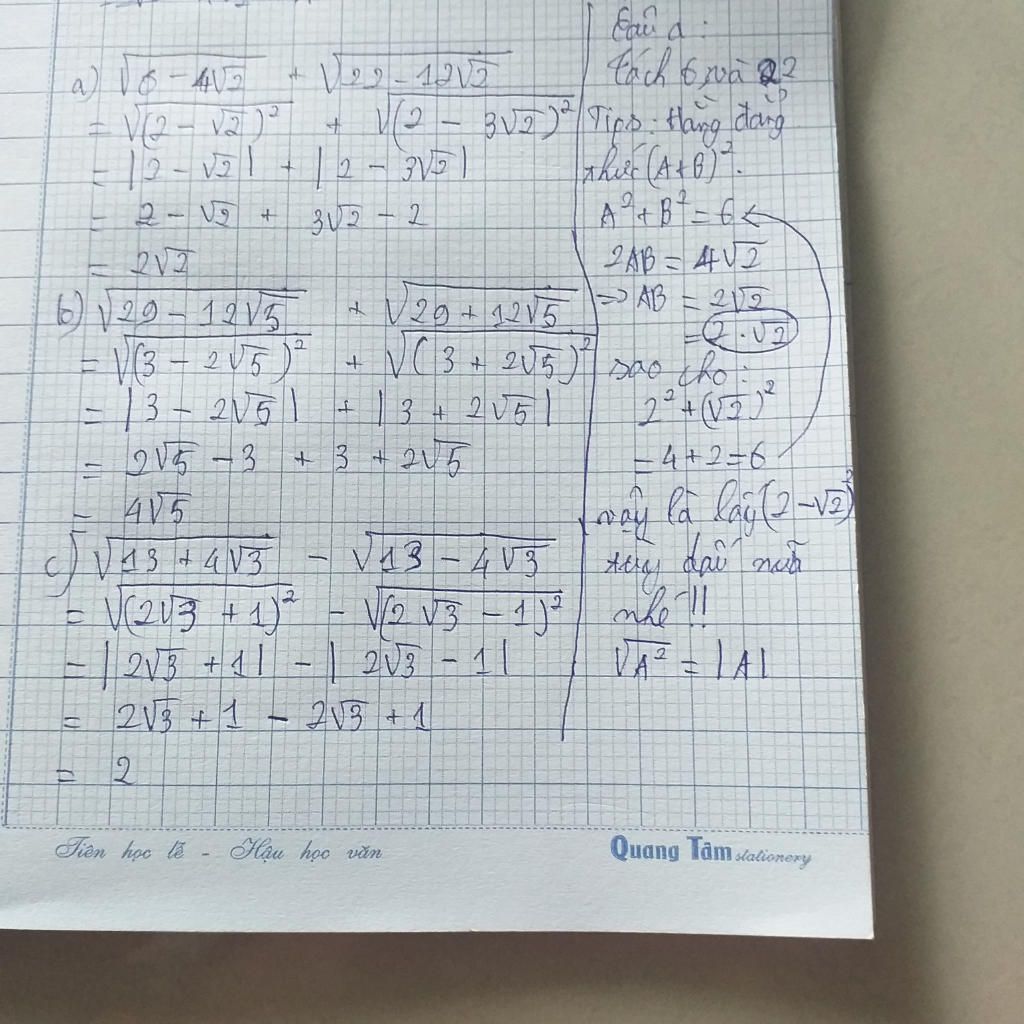 a) √(6 - 4√2) + √(22 - 12√2)
= √((2 - √2)²) + √((2 - 3√2)²)
= |2 - √2| + |2 - 3√2|
= 2 - √2 + 3√2 - 2
= 2√2
b) √(29 - 12√5) + √(29 + 12√5)
= √((3 - 2√5)²) + √((3 + 2√5)²)
= |3 - 2√5| + |3 + 2√5|
= 2√5 - 3 + 3 + 2√5
= 4√5
c) √(13 + 4√3) - √(13 - 4√3)
= √((2√3 + 1)²) - √((2√3 - 1)²)
= |2√3 + 1| - |2√3 - 1|
= 2√3 + 1 - 2√3 + 1
= 2
Câu a:
Tách 6 và 22
Tips: Hằng đẳng
thức (A+B)².
A² + B² = 6
2AB = 4√2
=> AB = 2√2
= 2 . √2
sao cho:
2² + (√2)²
= 4 + 2 = 6
vậy là lấy (2 - √2)²
tùy dấu nữa
nhé!!
√(A²) = |A|
Tiên học lễ - Hậu học văn
Quang Tâm stationery